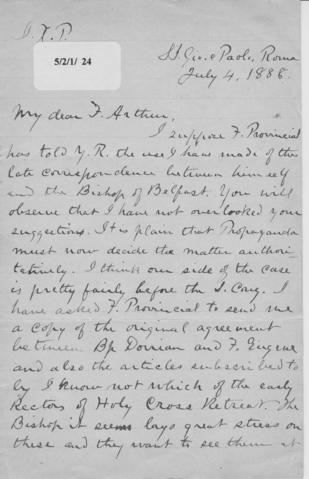 J. X. P.
5/2/1/ 24
SS. Gio. e Paolo, Roma
July 4, 1888.
My dear F. Arthur,
I suppose F. Provincial
has told Y. R. the use I have made of the
late correspondence between himself
and the Bishop of Belfast. You will
observe that I have not overlooked your
suggestions. It is plain that Propaganda
must now decide the matter authori-
tatively. I think our side of the case
is pretty fairly before the S. Cong. I
have asked F. Provincial to send me
a copy of the original agreement
between Bp Dorrian and F. Eugene
and also the articles subscribed to
by I know not which of the early
Rectors of Holy Cross Retreat. The
Bishop it seems lays great stress on
these and they want to see them at